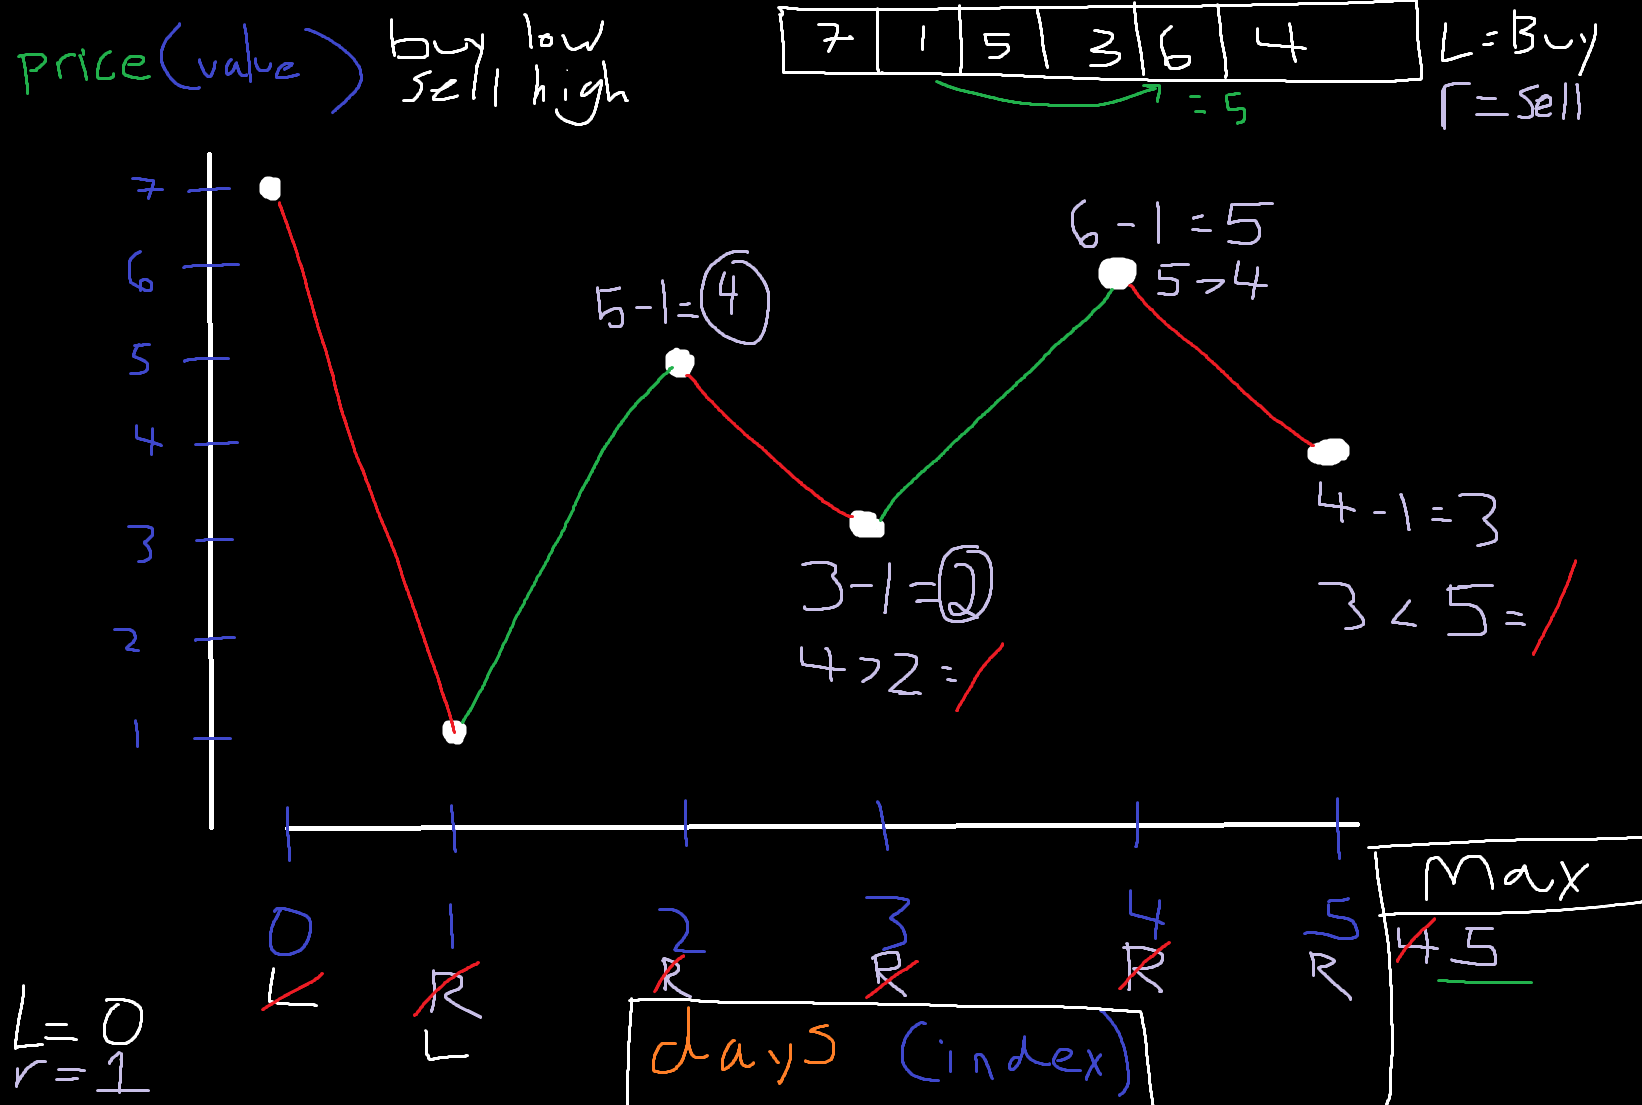 price (value)
buy low
sell high
7 1 5 3 6 4
= 5
L = Buy
r = Sell
7
6
5
4
3
2
1
5 - 1 = 4
3 - 1 = 2
4 > 2 =
6 - 1 = 5
5 > 4
4 - 1 = 3
3 < 5 =
0 1 2 3 4 5
L R R R R R
L
L = 0
r = 1
days (index)
Max
4 5